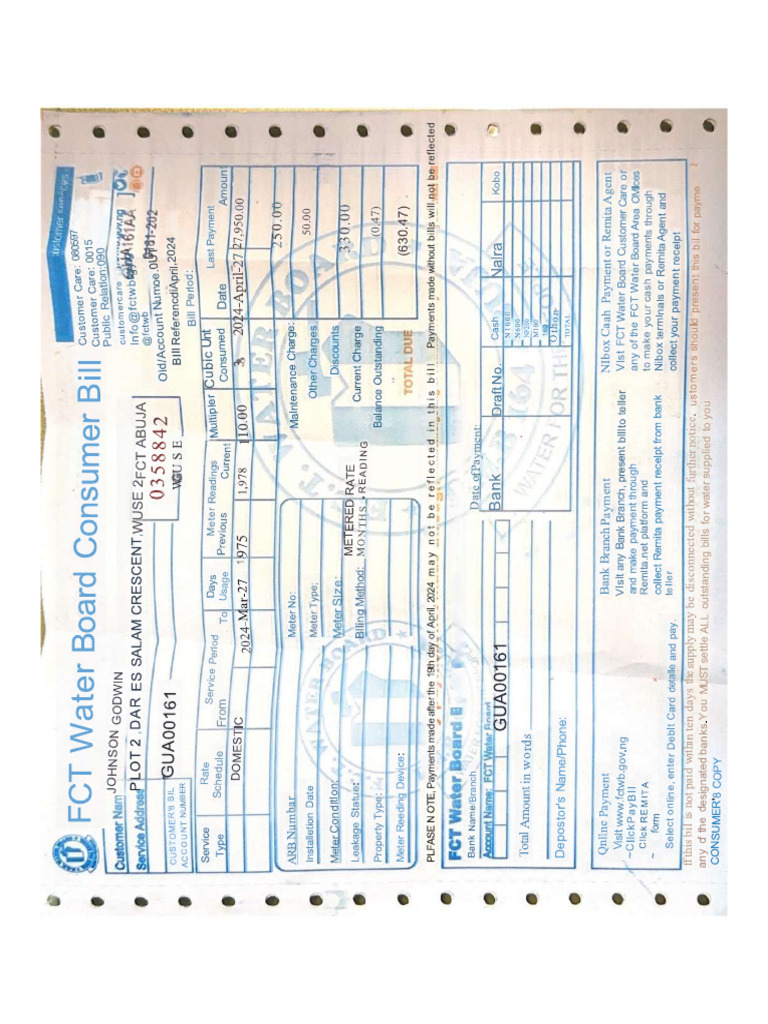 FCT Water Board Consumer Bill
Customer Services
Customer Care: 080597
Customer Care: 0015
Public Relation:090
customercare
Info@fctwb
@fctwb
Customer Nam JOHNSON GODWIN
Service Address PLOT 2 ,DAR ES SALAM CRESCENT,WUSE 2FCT ABUJA
0358842
WUSE
CUSTOMER'S BIL
ACCOUNT NUMBER
GUA00161
Old/Account Numoe.
Bill Referencd/April,2024
Bill Period:
Service Type
Rate Schedule
Service Period
From To
Days Usage
Meter Readings
Previous Current
Multiplier
Cubic Unt Consumed
Last Payment
Date Amoun
DOMESTIC 2024-Mar-27 1975 1,978 110.00 3 2024-April-27 27,950.00
ARB Numbar
Installetion Date
Meter Condition;
Leakage Status:
Property Type:
Meter Reeding Device:
Meter No:
Meter Type;
Meter Size:
Billing Method:
METERED RATE
MONTHS READING
Maintenance Charge: 250.00
Other Charges 50.00
Discounts
Current Charge 330.00
Balance Outstanding (0.47)
TOTAL DUE (630.47)
PLFASE N OTE, Payments made after the 19th day of April, 2024 may not be reflected in this bill Payments made without bills will not be reflected
FCT Water Board
Bank Name/Branch
Account Name: FCT Water Board
GUA00161
Date of Payment:
Bank Draft No. Cash Naira Kobo
N1000
N500
N200
N100
Other
TOTAL
Total Amount in words
Depostor's Name/Phone:
Qnline Payment
Visit www.fctwb.gov,ng
~ClickPayBIl
Click REMITA
~ form
Select online, enter DebIt Card detaile and pay.
Bank Branch Payment
VIsIt any Bank Branch, present billto teller
and make payment through
Remita.net platform and
collect Remita payment receipt from bank
teller
NIbox Caah Payment or Remita Agent
VIst FCT Water Board Customer Care or
any of the FCT Water Board Area Offices
to make your cash payments through
Nibox termInals or Remita Agent and
collect your payment receipt
If this bil is not paid within ten days the supply may be disconnected without further notice, ustomers should present this bil for payme
any of the designated banks.You MUST settle ALL outstanding bills for water supplied to you
CONSUMER'S COPY